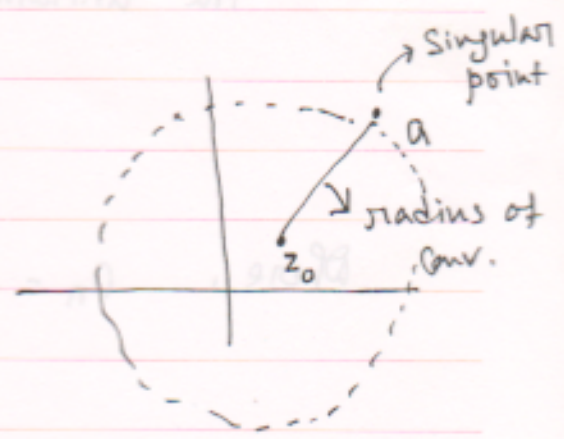 Singular
point
a
radius of
Conv.
z₀